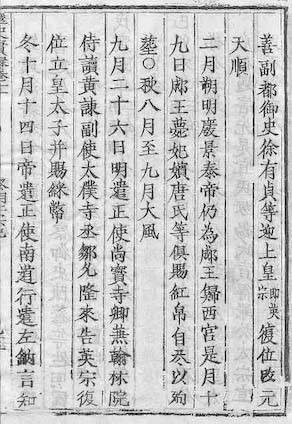 善副都御史徐有貞等迎上皇即英宗復位改元
天順
二月朔明廢景泰帝仍為郕王歸西宮是月十
九日郕王薨妃嬪唐氏等俱賜紅帛自尽以殉
塟○秋八月至九月大風
九月二十六日明遣正使尚寳寺卿兼翰林院
侍讀黃諫副使太僕寺丞鄒允隆來告英宗復
位立皇太子并賜綵幣
冬十月十四日帝遣正使南道行遣左納言知